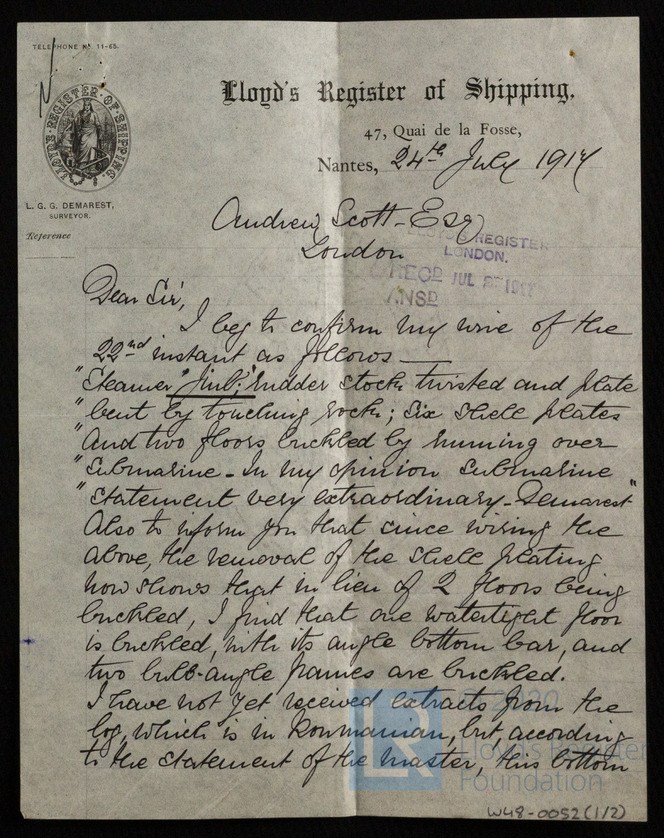 TELEPHONE Nº 11-65.
N
LLOYD'S REGISTER OF SHIPPING.
Lloyd's Register of Shipping.
47, Quai de la Fosse,
Nantes, 24th July 1917
L. G. G. DEMAREST,
SURVEYOR.
Reference
Andrew Scott Esq
London
LLOYD'S REGISTER
LONDON.
RECD JUL 1917
ANSD
Dear Sir,
I beg to confirm my wire of the
22nd instant as follows —
"Steamer "Jiul," rudder stock twisted and plate
"bent by touching rock; six shell plates
"and two floors buckled by running over
"submarine - In my opinion submarine
"statement very extraordinary - Demarest"
Also to inform you that since wiring the
above, the removal of the shell plating
now shows that in lieu of 2 floors being
buckled, I find that one watertight floor
is buckled, with its angle bottom bar, and
two bulb-angle frames are buckled.
I have not yet received extracts from the
log, which is in Roumanian, but, according
to the statement of the master, this bottom
LR
© 2020
Lloyd's Register
Foundation
W48-0052(1/2)